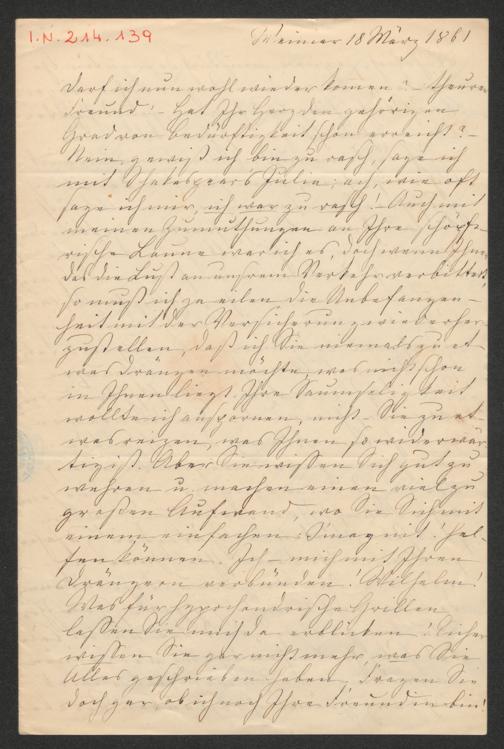 I.N. 214.139
Weimar 18 März 1861
Darf ich nun wohl wieder komen? – theurer
Freund – Hat Ihr Herz den gehörigen
Grad von Bedürftigkeit schon erreicht? –
Nein, gewiß ich bin zu rasch, sage ich
mit Shakespears Julia; ach, wie oft
sage ich mir, ich war zu rasch! Auch mit
meinen Zumuthungen an Ihre schöpfe-
rische Laune war ich es, doch wenn Ihnen
das die Lust an unsrem Verkehr verbittert,
so muß ich ja eilen die Unbefangen-
heit mit der Versicherung wiederher-
zustellen, daß ich Sie niemals zu et-
was drängen möchte, was nicht schon
in Ihnen liegt. Ihre Saumseligkeit
wollte ich anspornen, nicht – Sie zu et-
was reizen, was Ihnen so widerwär-
tig ist. Aber Sie wissen Sich gut zu
wehren u. machen einen viel zu
großen Aufwand, wo Sie Sich mit
einem einfachen: S'mag nit! hel-
fen können. Ich – mich mit Ihren
Drängern verbünden! Wilhelm!
Was für hypochondrische Grillen
lassen Sie mich da erblicken!
wissen Sie gar nicht mehr, was Sie
Alles geschrieben haben. Fragen Sie
doch gar, ob ich noch Ihre Freundin bin!